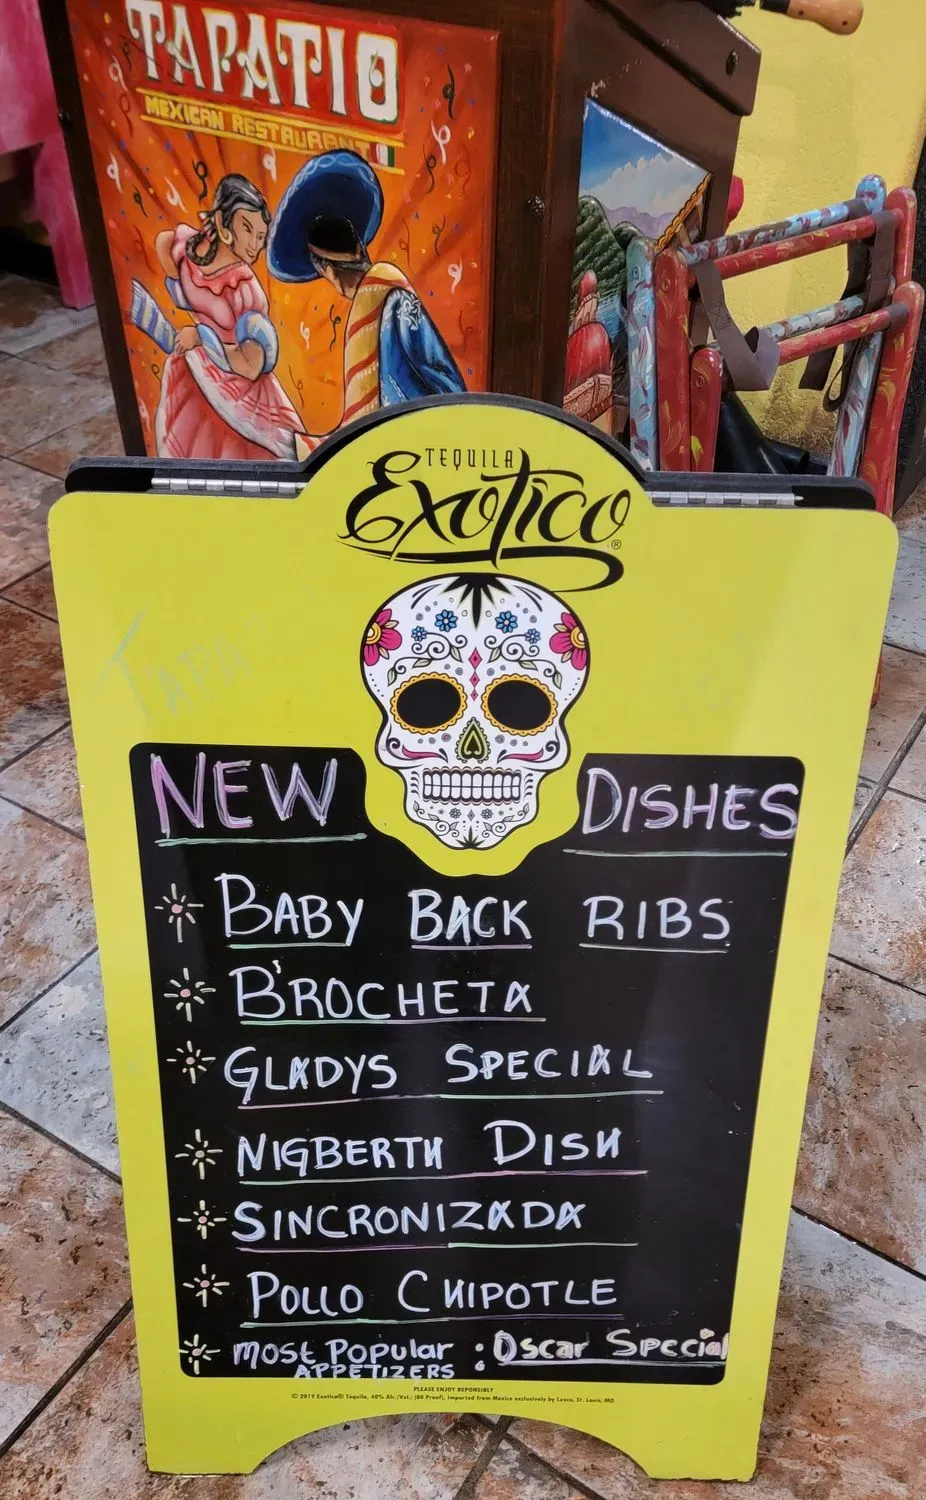 TAPATIO
MEXICAN RESTAURANT
TEQUILA
Exotico®
TAPA
NEW DISHES
BABY BACK RIBS
B'ROCHETA
GLADYS SPECIAL
NIGBERTH DISH
SINCRONIZADA
POLLO CHIPOTLE
MOST POPULAR : OSCAR SPECIAL
APPETIZERS
PLEASE ENJOY REPONSIBLY
© 2019 Exotico® Tequila, 40% Alc./Vol.; (80 Proof), Imported from Mexico exclusively by Luxco, St. Louis, MO